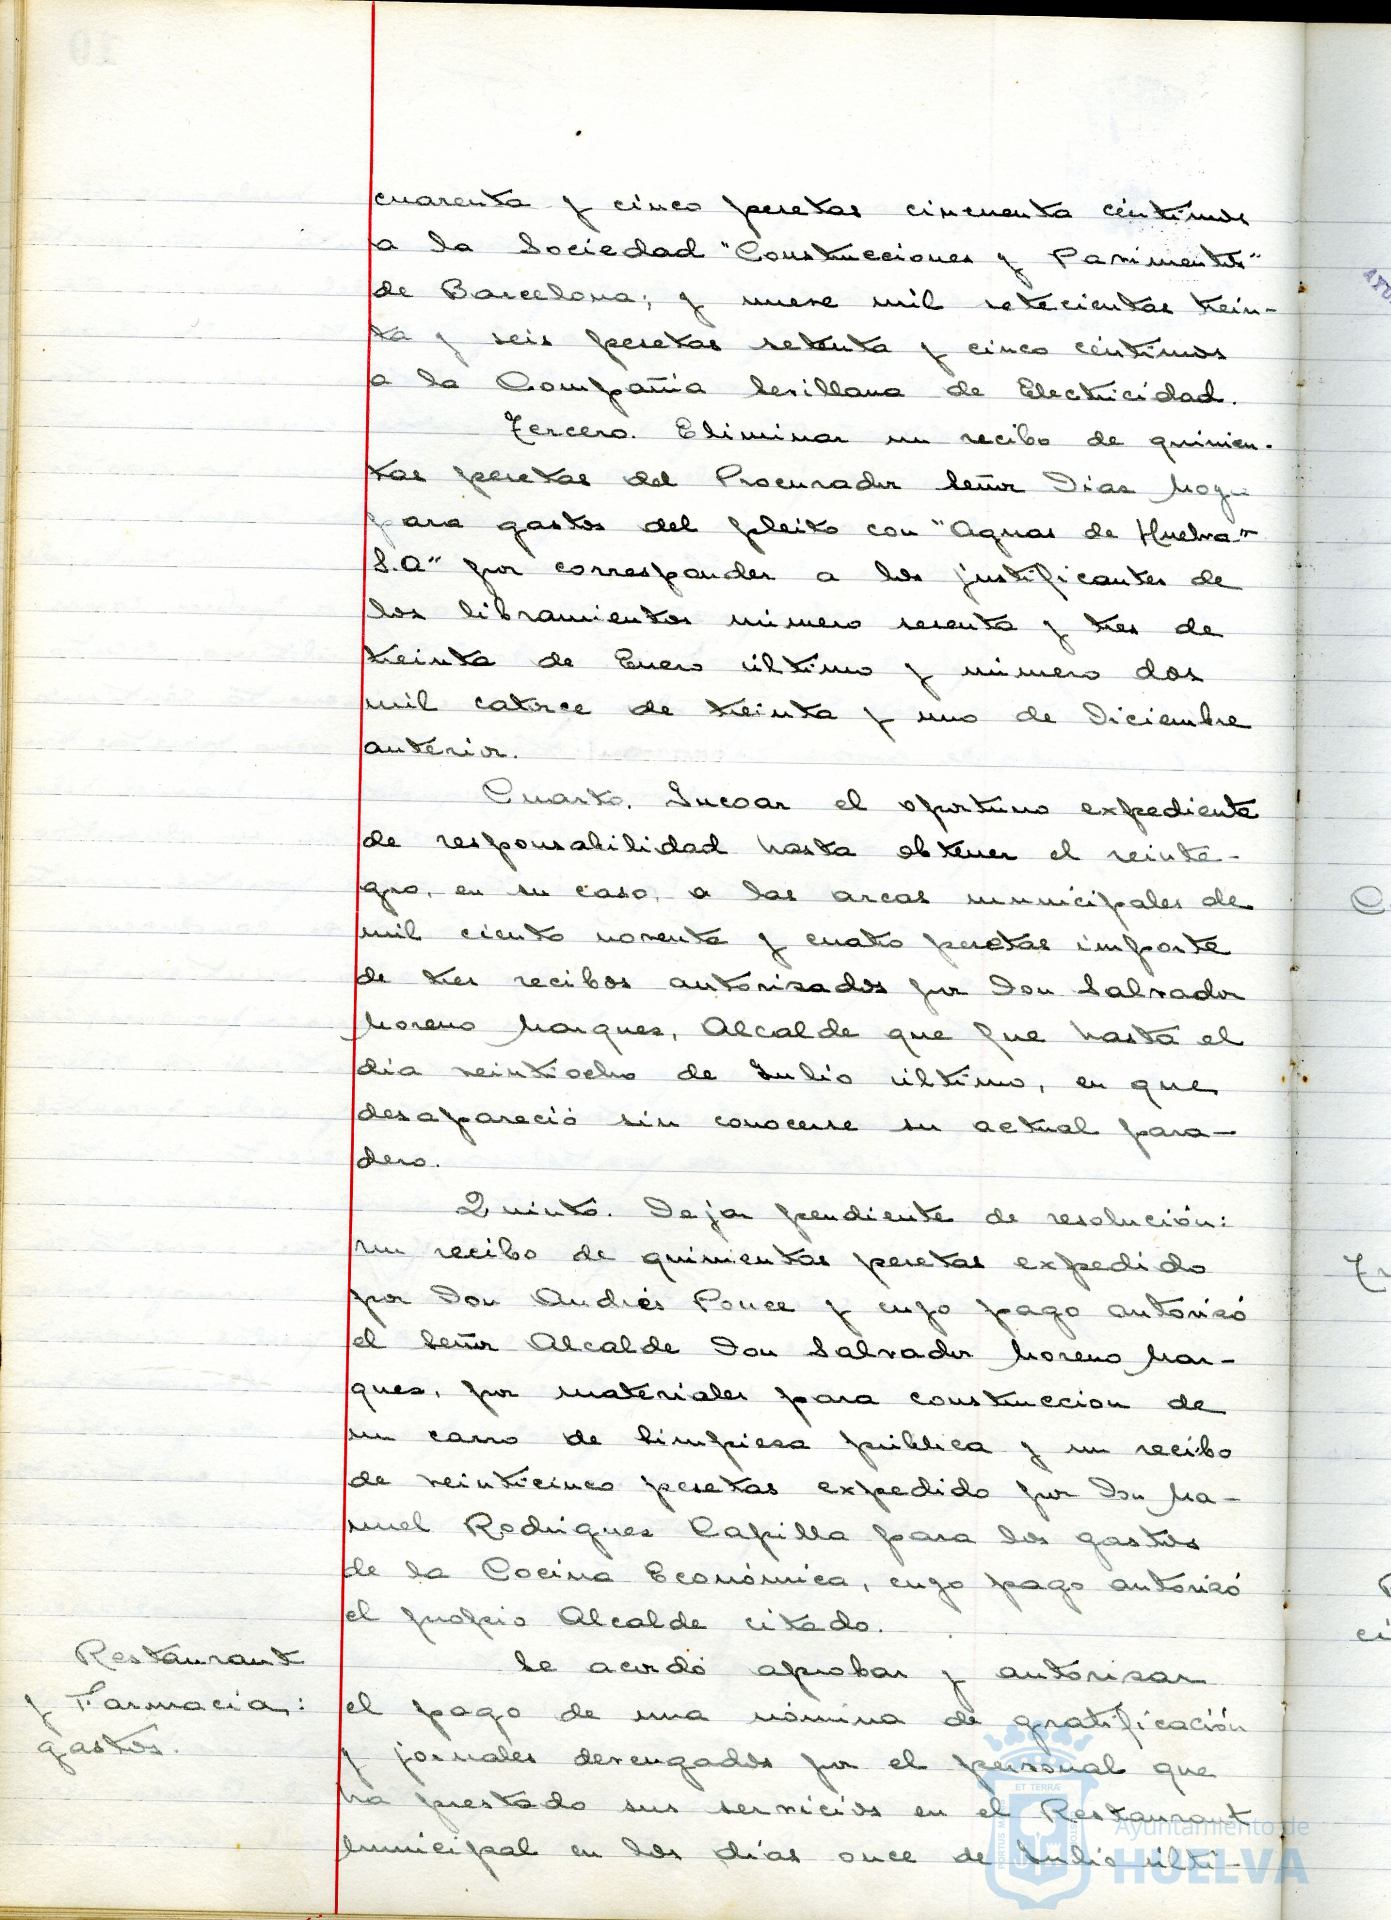 cuarenta y cinco pesetas cincuenta céntimos
a la Sociedad "Construcciones y Pavimentos"
de Barcelona; y nueve mil setecientas trein-
ta y seis pesetas setenta y cinco céntimos
a la Compañía Sevillana de Electricidad.
Tercero. Eliminar un recibo de quinien-
tas pesetas del Procurador Señor Díaz
para gastos del pleito con "Aguas de Huelva"
S.A" por corresponder a los justificantes de
los libramientos número sesenta y tres de
treinta de Enero último y número dos
mil catorce de treinta y uno de Diciembre
anterior.
Cuarto. Incoar el oportuno expediente
de responsabilidad hasta obtener el reinte-
gro, en su caso, a las arcas municipales de
mil ciento noventa y cuatro pesetas importe
de tres recibos autorizados por Don Salvador
Moreno Marquez, Alcalde que fue hasta el
día veintiocho de Julio último, en que
desapareció sin conocerse su actual para-
dero.
Quinto. Dejar pendiente de resolución:
un recibo de quinientas pesetas expedido
por Don Andrés Ponce y cuyo pago autorizó
el Señor Alcalde Don Salvador Moreno Mar-
quez, por materiales para construccion de
un carro de limpieza pública y un recibo
de veinticinco pesetas expedido por Don Ma-
nuel Rodriguez Capilla para los gastos
de la Cocina Económica, cuyo pago autorizó
el propio Alcalde citado.
Restaurant
y Farmacia:
gastos.
Se acordó aprobar y autorizar
el pago de una nómina de gratificación
y jornales devengados por el personal que
ha prestado sus servicios en el Restaurant
Municipal en los días once de Julio últi-
ET TERRÆ
PORTUS MA
CUSTO
Ayuntamiento de
HUELVA